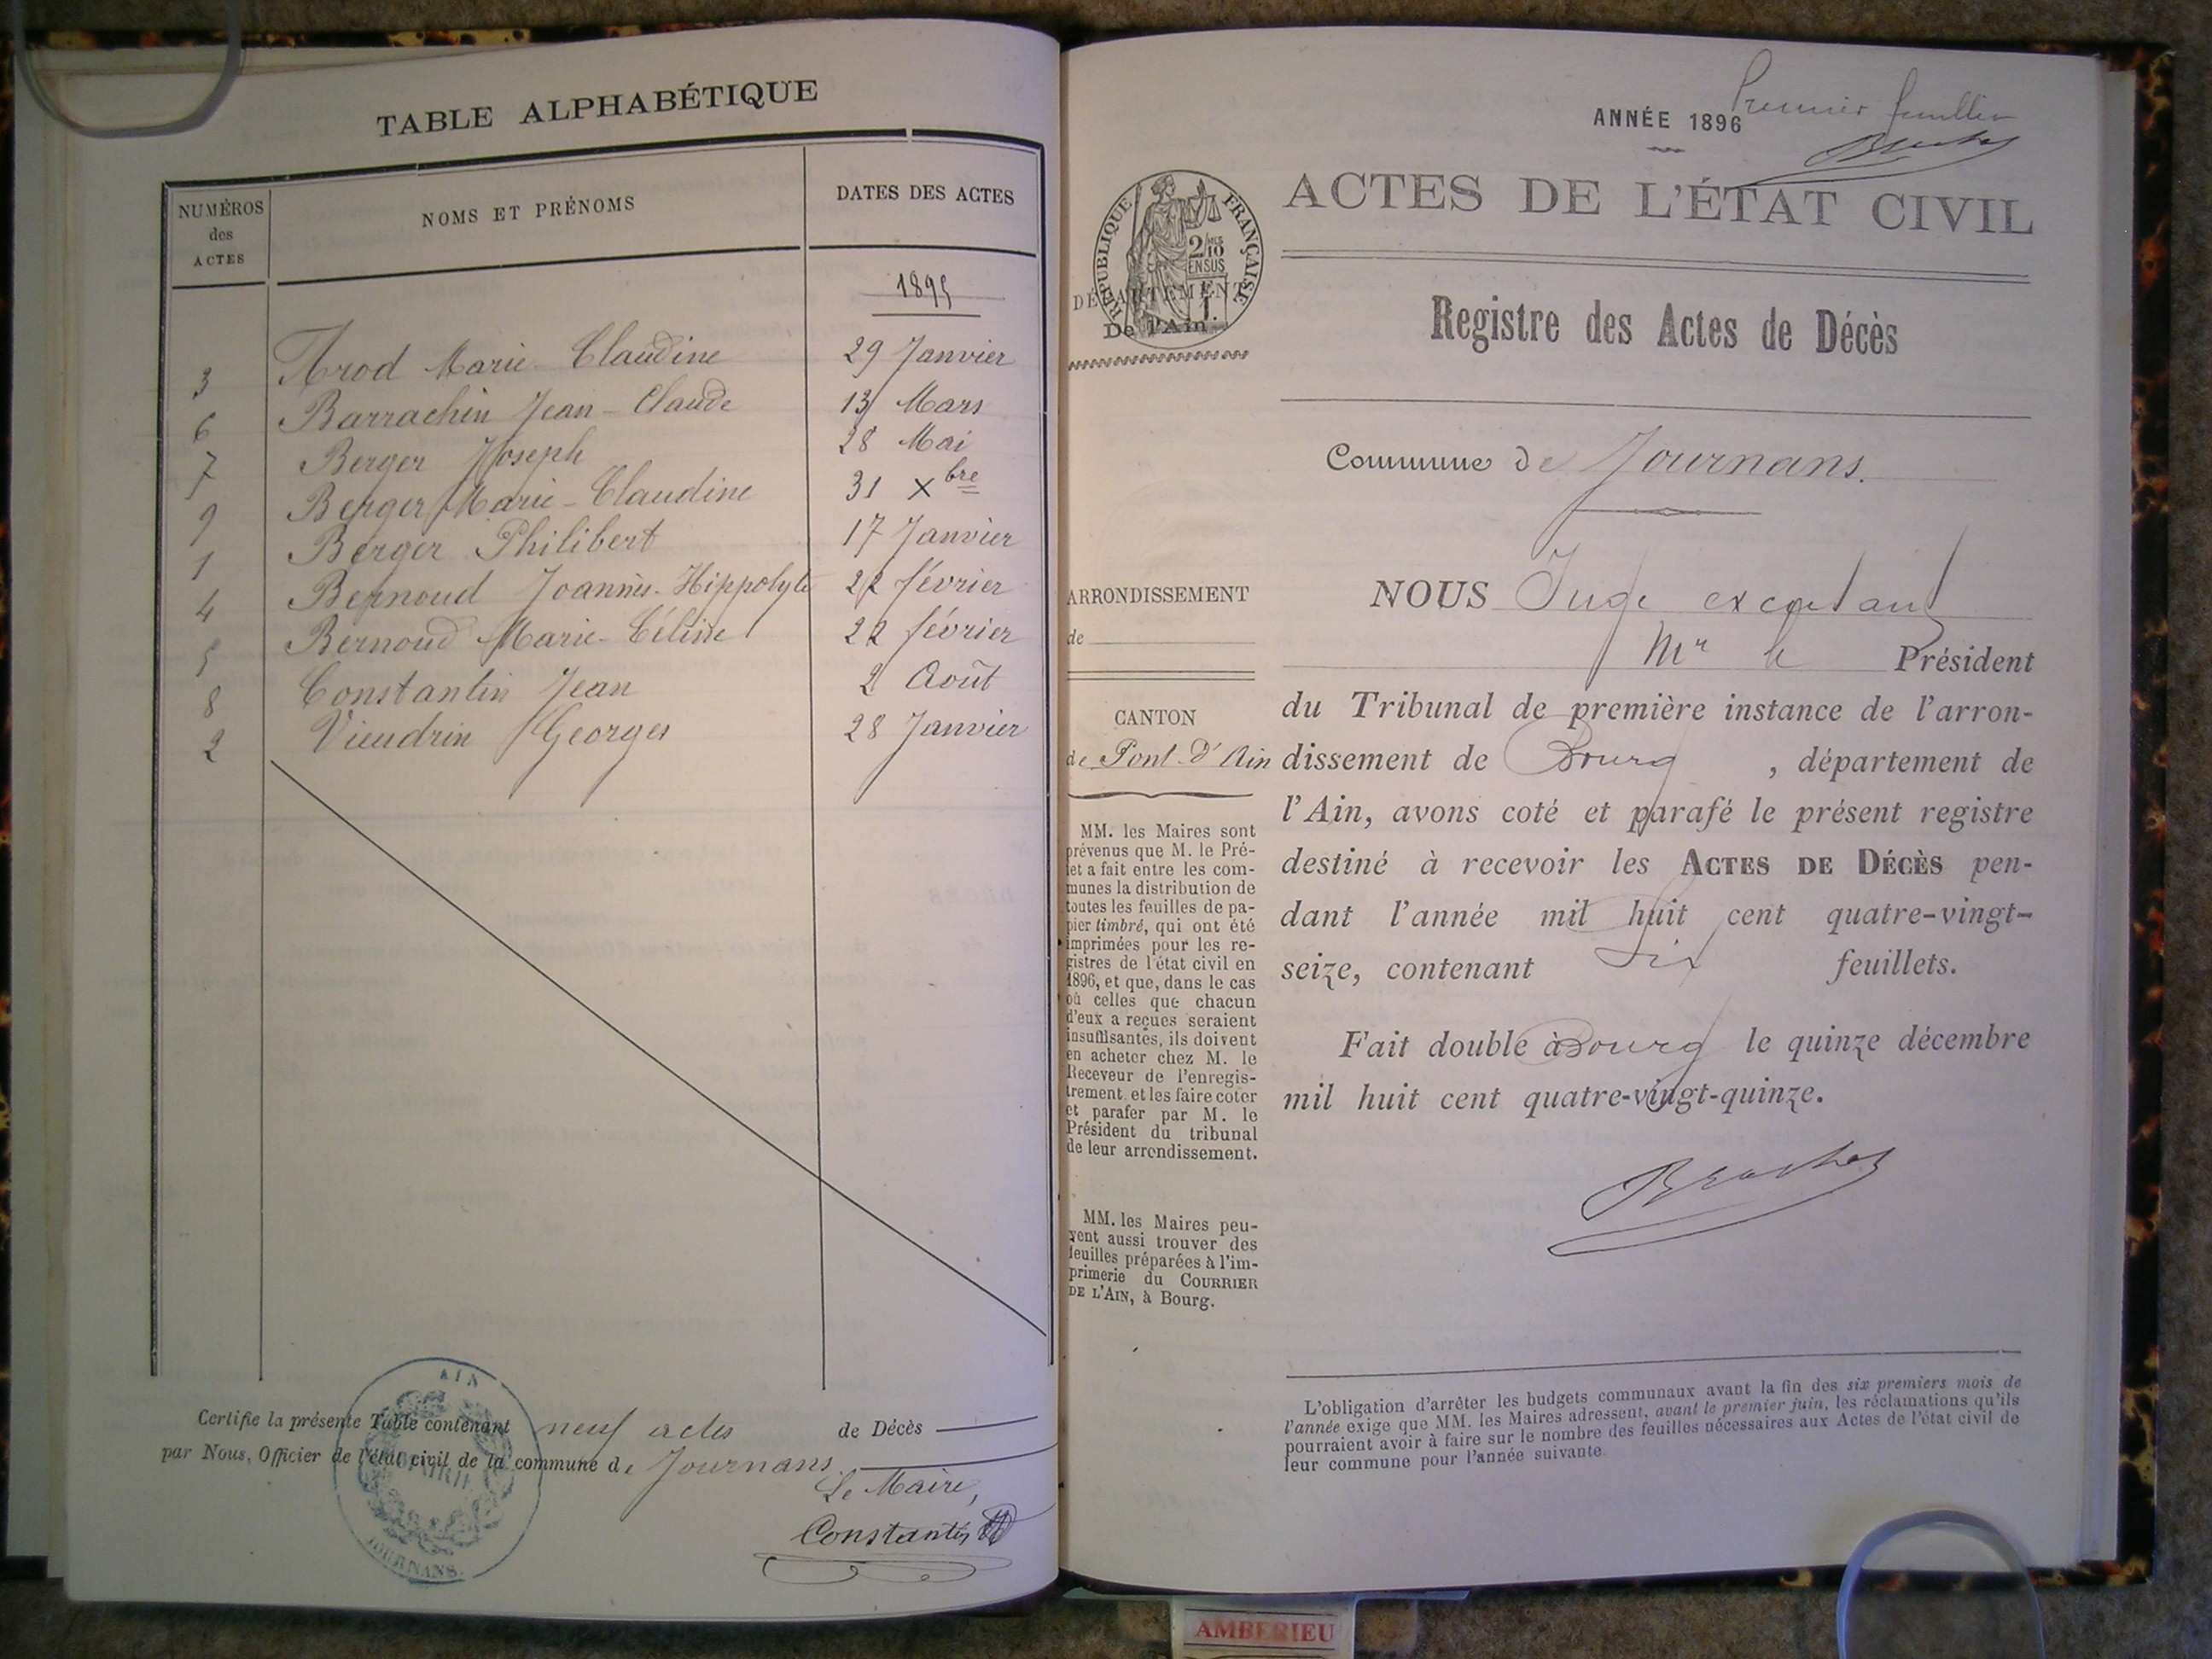 TABLE ALPHABÉTIQUE
NUMÉROS
des
ACTES
NOMS ET PRÉNOMS
DATES DES ACTES
1895
3 Arod Marie Claudine 29 Janvier
6 Barrachin Jean-Claude 13 Mars
7 Berger Joseph 28 Mai
9 Berger Marie-Claudine 31 Xbre
1 Berger Philibert 17 Janvier
4 Bernoud Joannès-Hippolyte 22 février
5 Bernoud Marie-Céline 22 février
8 Constantin Jean 2 Août
2 Vieudrin Georges 28 Janvier
Certifie la présente Table contenant neuf actes de Décès
par Nous, Officier de l'état civil de la commune de Journans.
Le Maire,
Constantin
AIN
MAIRIE
JOURNANS.
ANNÉE 1896
Premier feuillet
ACTES DE L'ÉTAT CIVIL
RÉPUBLIQUE FRANÇAISE
2/10
EN SUS
DÉPARTEMENT
De l'Ain
Registre des Actes de Décès
Commune de Journans.
ARRONDISSEMENT
de
CANTON
de Pont-d'Ain
MM. les Maires sont
prévenus que M. le Pré-
fet a fait entre les com-
munes la distribution de
toutes les feuilles de pa-
pier timbré, qui ont été
imprimées pour les re-
gistres de l'état civil en
1896, et que, dans le cas
où celles que chacun
d'eux a reçues seraient
insuffisantes, ils doivent
en acheter chez M. le
Receveur de l'enregis-
trement et les faire coter
et parafer par M. le
Président du tribunal
de leur arrondissement.
MM. les Maires peu-
vent aussi trouver des
feuilles préparées à l'im-
primerie du COURRIER
DE L'AIN, à Bourg.
NOUS Juge exceptant
Mr le Président
du Tribunal de première instance de l'arron-
dissement de Bourg, département de
l'Ain, avons coté et parafé le présent registre
destiné à recevoir les ACTES DE DÉCÈS pen-
dant l'année mil huit cent quatre-vingt-
seize, contenant Six feuillets.
Fait double à Bourg le quinze décembre
mil huit cent quatre-vingt-quinze.
L'obligation d'arrêter les budgets communaux avant la fin des six premiers mois de
l'année exige que MM. les Maires adressent, avant le premier juin, les réclamations qu'ils
pourraient avoir à faire sur le nombre des feuilles nécessaires aux Actes de l'état civil de
leur commune pour l'année suivante
AMBERIEU